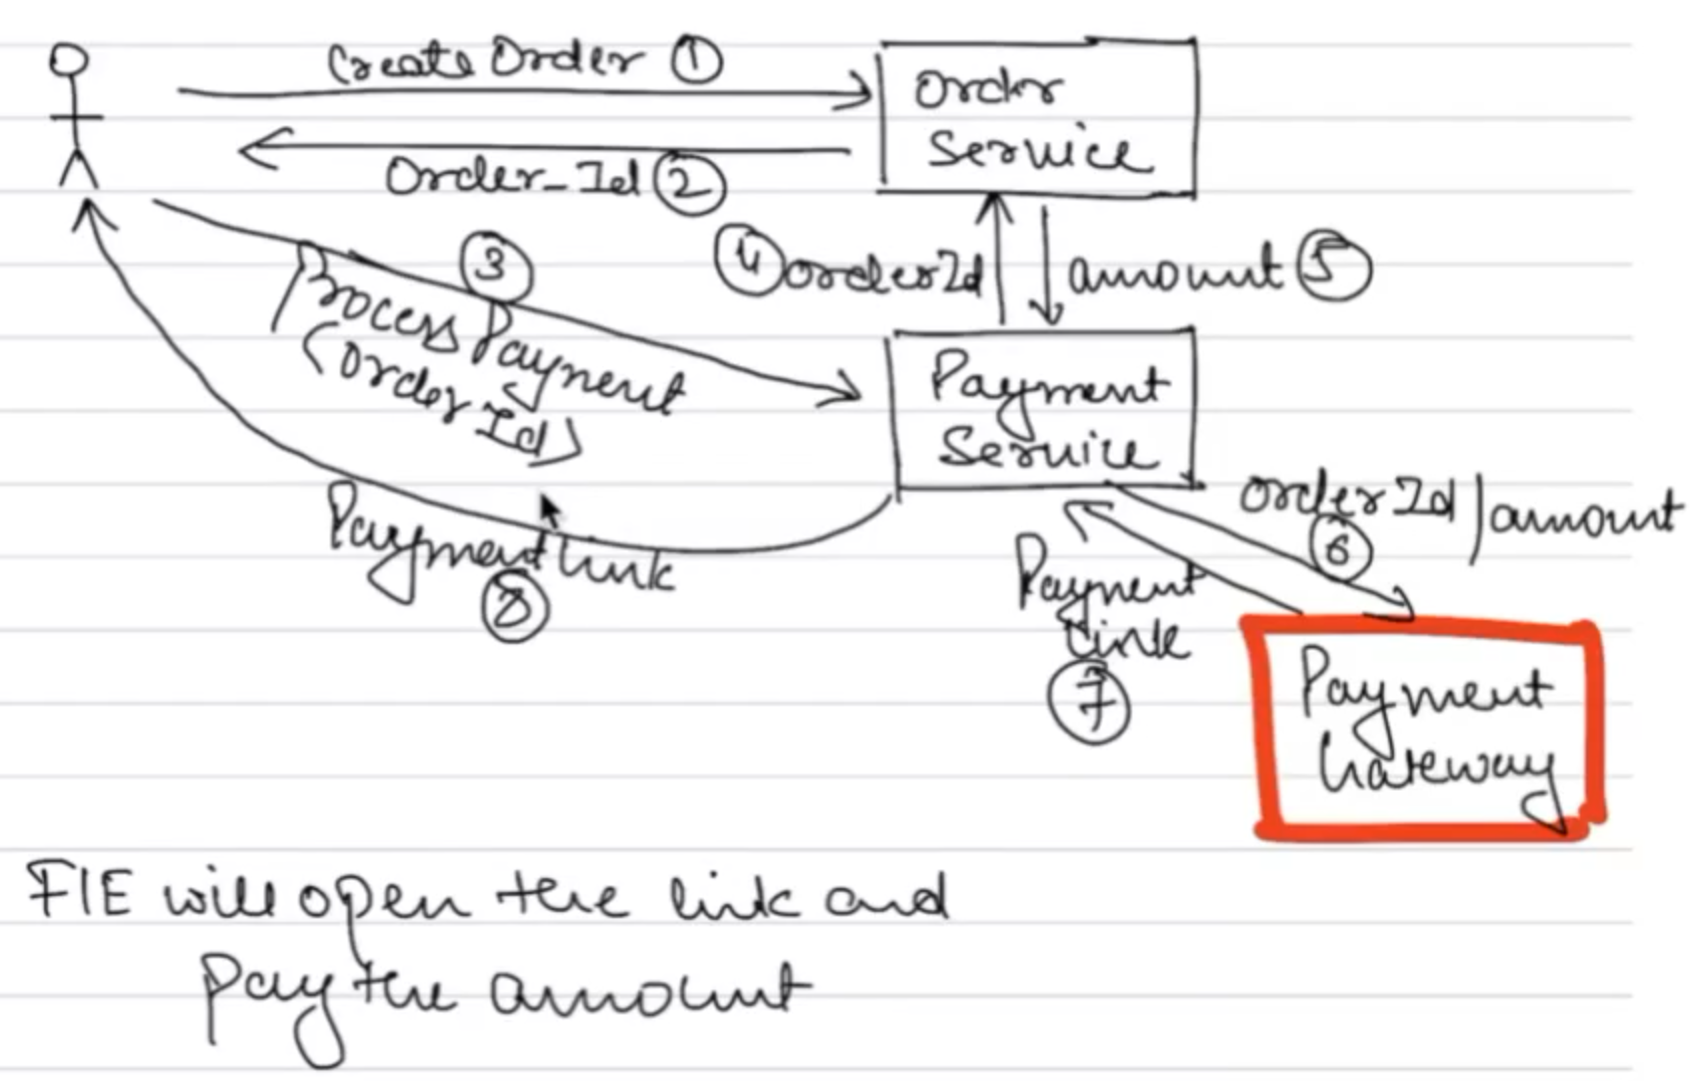 Create Order ①
Order
Service
Order_Id ②
③
Process Payment
(order Id)
④ orderId
amount ⑤
Payment
Service
orderId / amount
⑥
Payment link
⑧
Payment
Link
⑦
Payment
Gateway
F/E will open the link and
Pay the amount